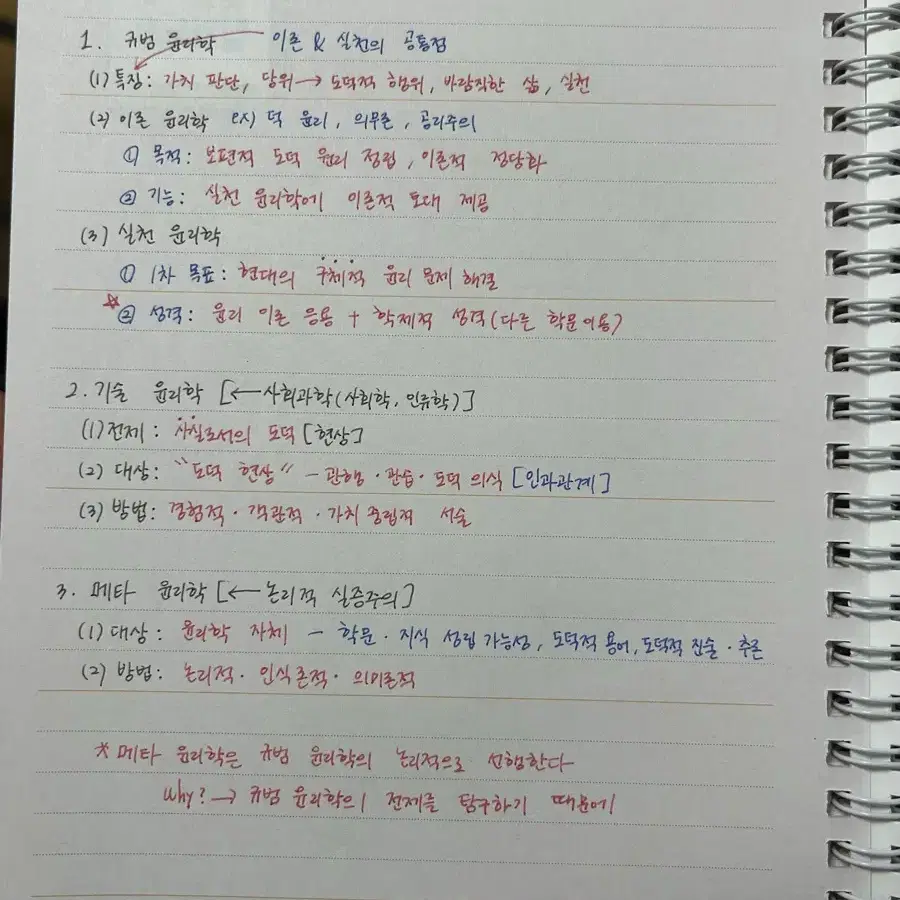 1. 규범 윤리학 이론 & 실천의 공통점
(1) 특징: 가치 판단, 당위 → 도덕적 행위, 바람직한 삶, 실천
(2) 이론 윤리학 ex) 덕 윤리, 의무론, 공리주의
① 목적: 보편적 도덕 원리 정립, 이론적 정당화
② 기능: 실천 윤리학에 이론적 토대 제공
(3) 실천 윤리학
① 1차 목표: 현대의 구체적 윤리 문제 해결
☆ ② 성격: 윤리 이론 응용 + 학제적 성격(다른 학문 이용)
2. 기술 윤리학 [← 사회과학(사회학, 인류학)]
(1) 전제: 사실로서의 도덕 [현상]
(2) 대상: "도덕 현상" - 관행·관습·도덕 의식 [인과관계]
(3) 방법: 경험적·객관적·가치 중립적 서술
3. 메타 윤리학 [← 논리적 실증주의]
(1) 대상: 윤리학 자체 - 학문·지식 성립 가능성, 도덕적 용어, 도덕적 진술·추론
(2) 방법: 논리적·인식론적·의미론적
* 메타 윤리학은 규범 윤리학의 논리적으로 선행한다
Why? → 규범 윤리학의 전제를 탐구하기 때문에